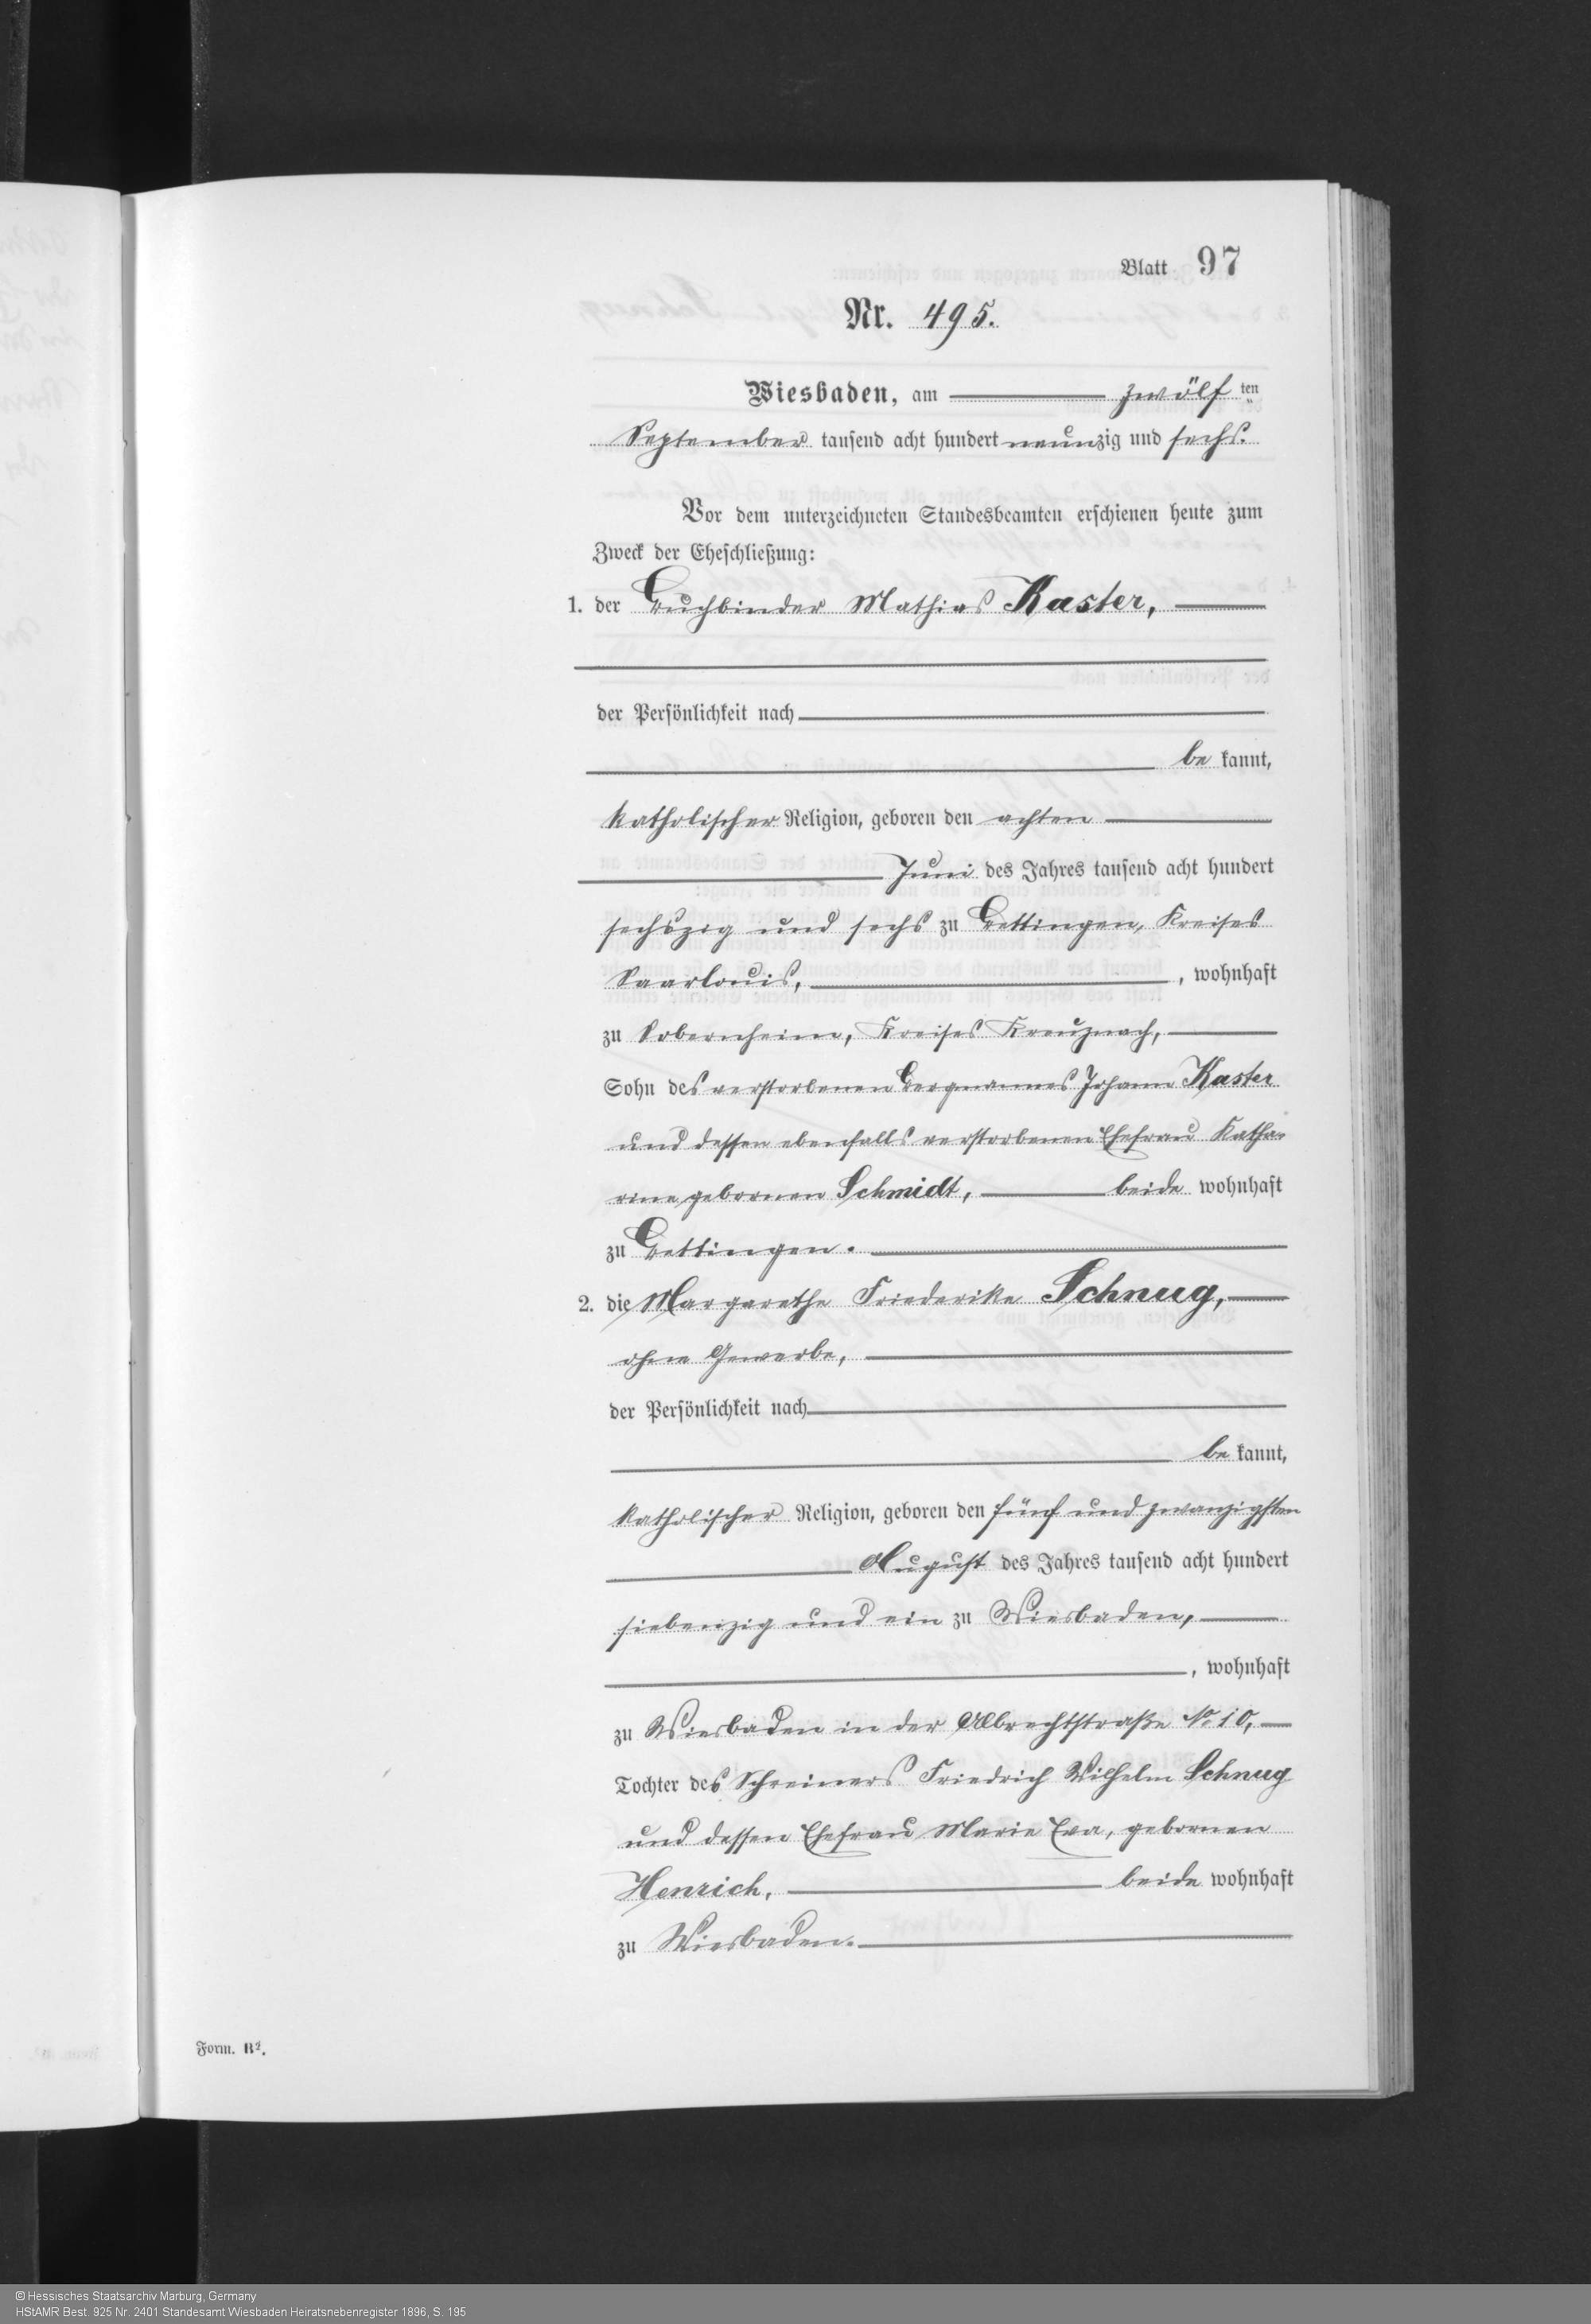 Blatt 97
Nr. 495.
Wiesbaden, am zwölf ten
September tausend acht hundert neunzig und sechs.
Vor dem unterzeichneten Standesbeamten erschienen heute zum
Zweck der Eheschließung:
1. der Buchbinder Mathias Kaster,
der Persönlichkeit nach
be kannt,
katholischer Religion, geboren den achten
Juni des Jahres tausend acht hundert
sechszig und sechs zu Bettingen, Kreises
Saarlouis, , wohnhaft
zu Sobernheim, Kreises Kreuznach,
Sohn des verstorbenen Bergmannes Johann Kaster
und dessen ebenfalls verstorbenen Ehefrau Katha-
rine gebornen Schmidt, beide wohnhaft
zu Bettingen.
2. die Margarethe Friederike Schnug,
ohne Gewerbe,
der Persönlichkeit nach
be kannt,
katholischer Religion, geboren den fünf und zwanzigsten
August des Jahres tausend acht hundert
siebenzig und ein zu Wiesbaden,
, wohnhaft
zu Wiesbaden in der Albrechtstraße No 10,
Tochter des Schreiners Friedrich Wilhelm Schnug
und dessen Ehefrau Marie Eva, gebornen
Henrich, beide wohnhaft
zu Wiesbaden.
Form. B².
© Hessisches Staatsarchiv Marburg, Germany
HStAMR Best. 925 Nr. 2401 Standesamt Wiesbaden Heiratsnebenregister 1896, S. 195